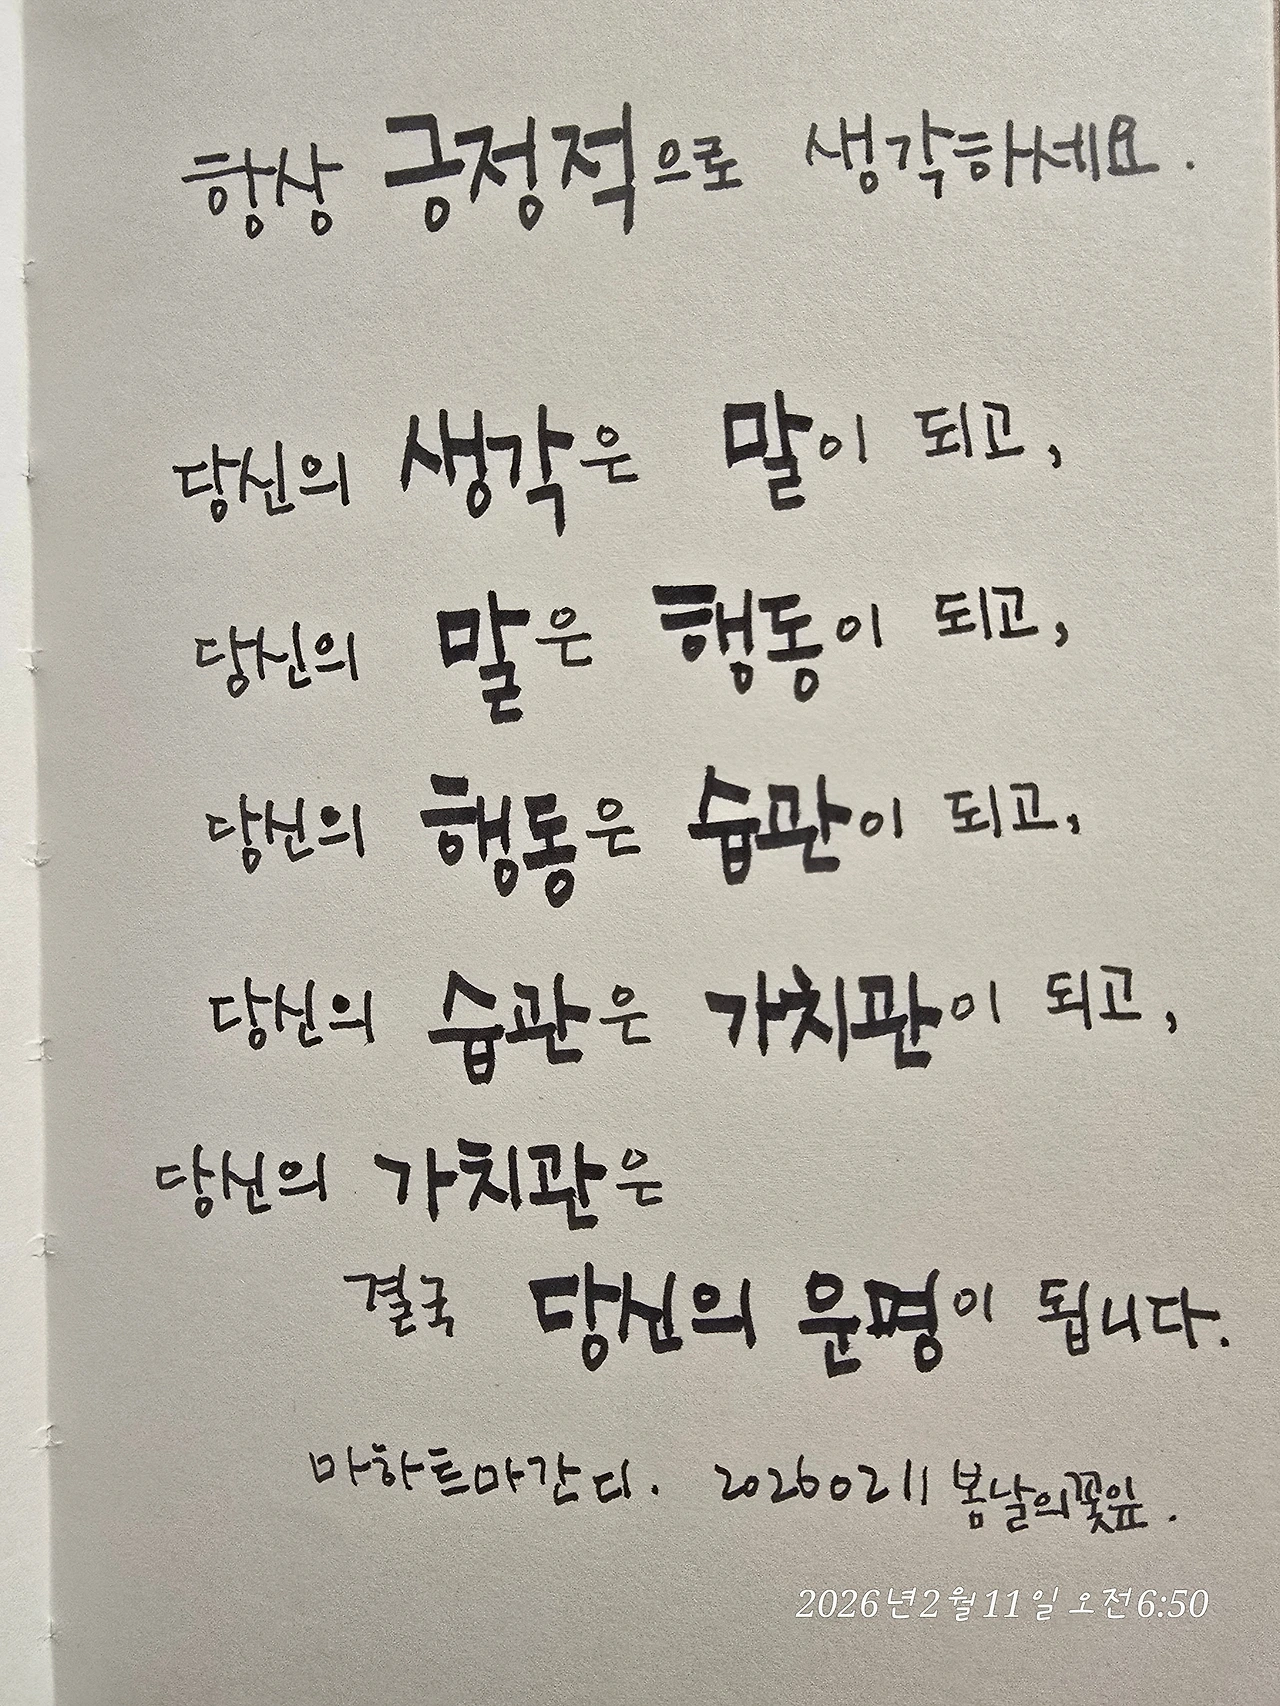 항상 긍정적으로 생각하세요.
당신의 생각은 말이 되고,
당신의 말은 행동이 되고,
당신의 행동은 습관이 되고,
당신의 습관은 가치관이 되고,
당신의 가치관은
결국 당신의 운명이 됩니다.
마하트마간디. 20260211 봄날의꽃잎.
2026년2월11일 오전6:50